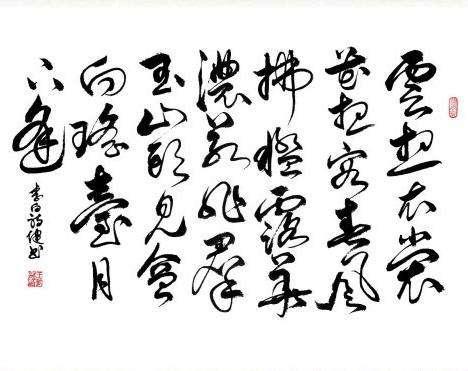 雲想衣裳
花想容春風
拂檻露華
濃若非羣
玉山頭見會
向瑤臺月
下逢
李白詩健書